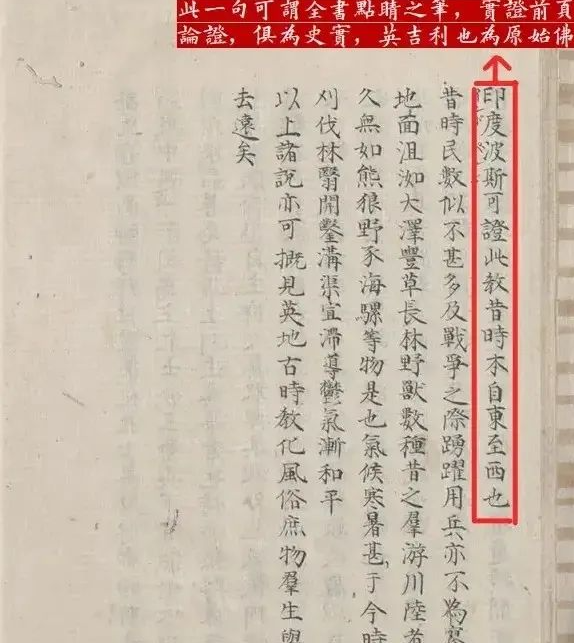 此一句可謂全書點睛之筆，實證前頁
論證，俱為史實，英吉利也為原始佛
印度波斯可證此教昔時本自東至西也
昔時民數似不甚多及戰爭之際踴躍用兵亦不為寡
地面沮洳大澤豐草長林野獸數種昔之羣游川陸者
久無如熊狼野豕海騾等物是也氣候寒暑甚于今時
刈伐林翳開鑿溝渠宣滯導鬱氣漸和平
以上諸說亦可概見英地古時教化風俗庶物羣生與
去遠矣